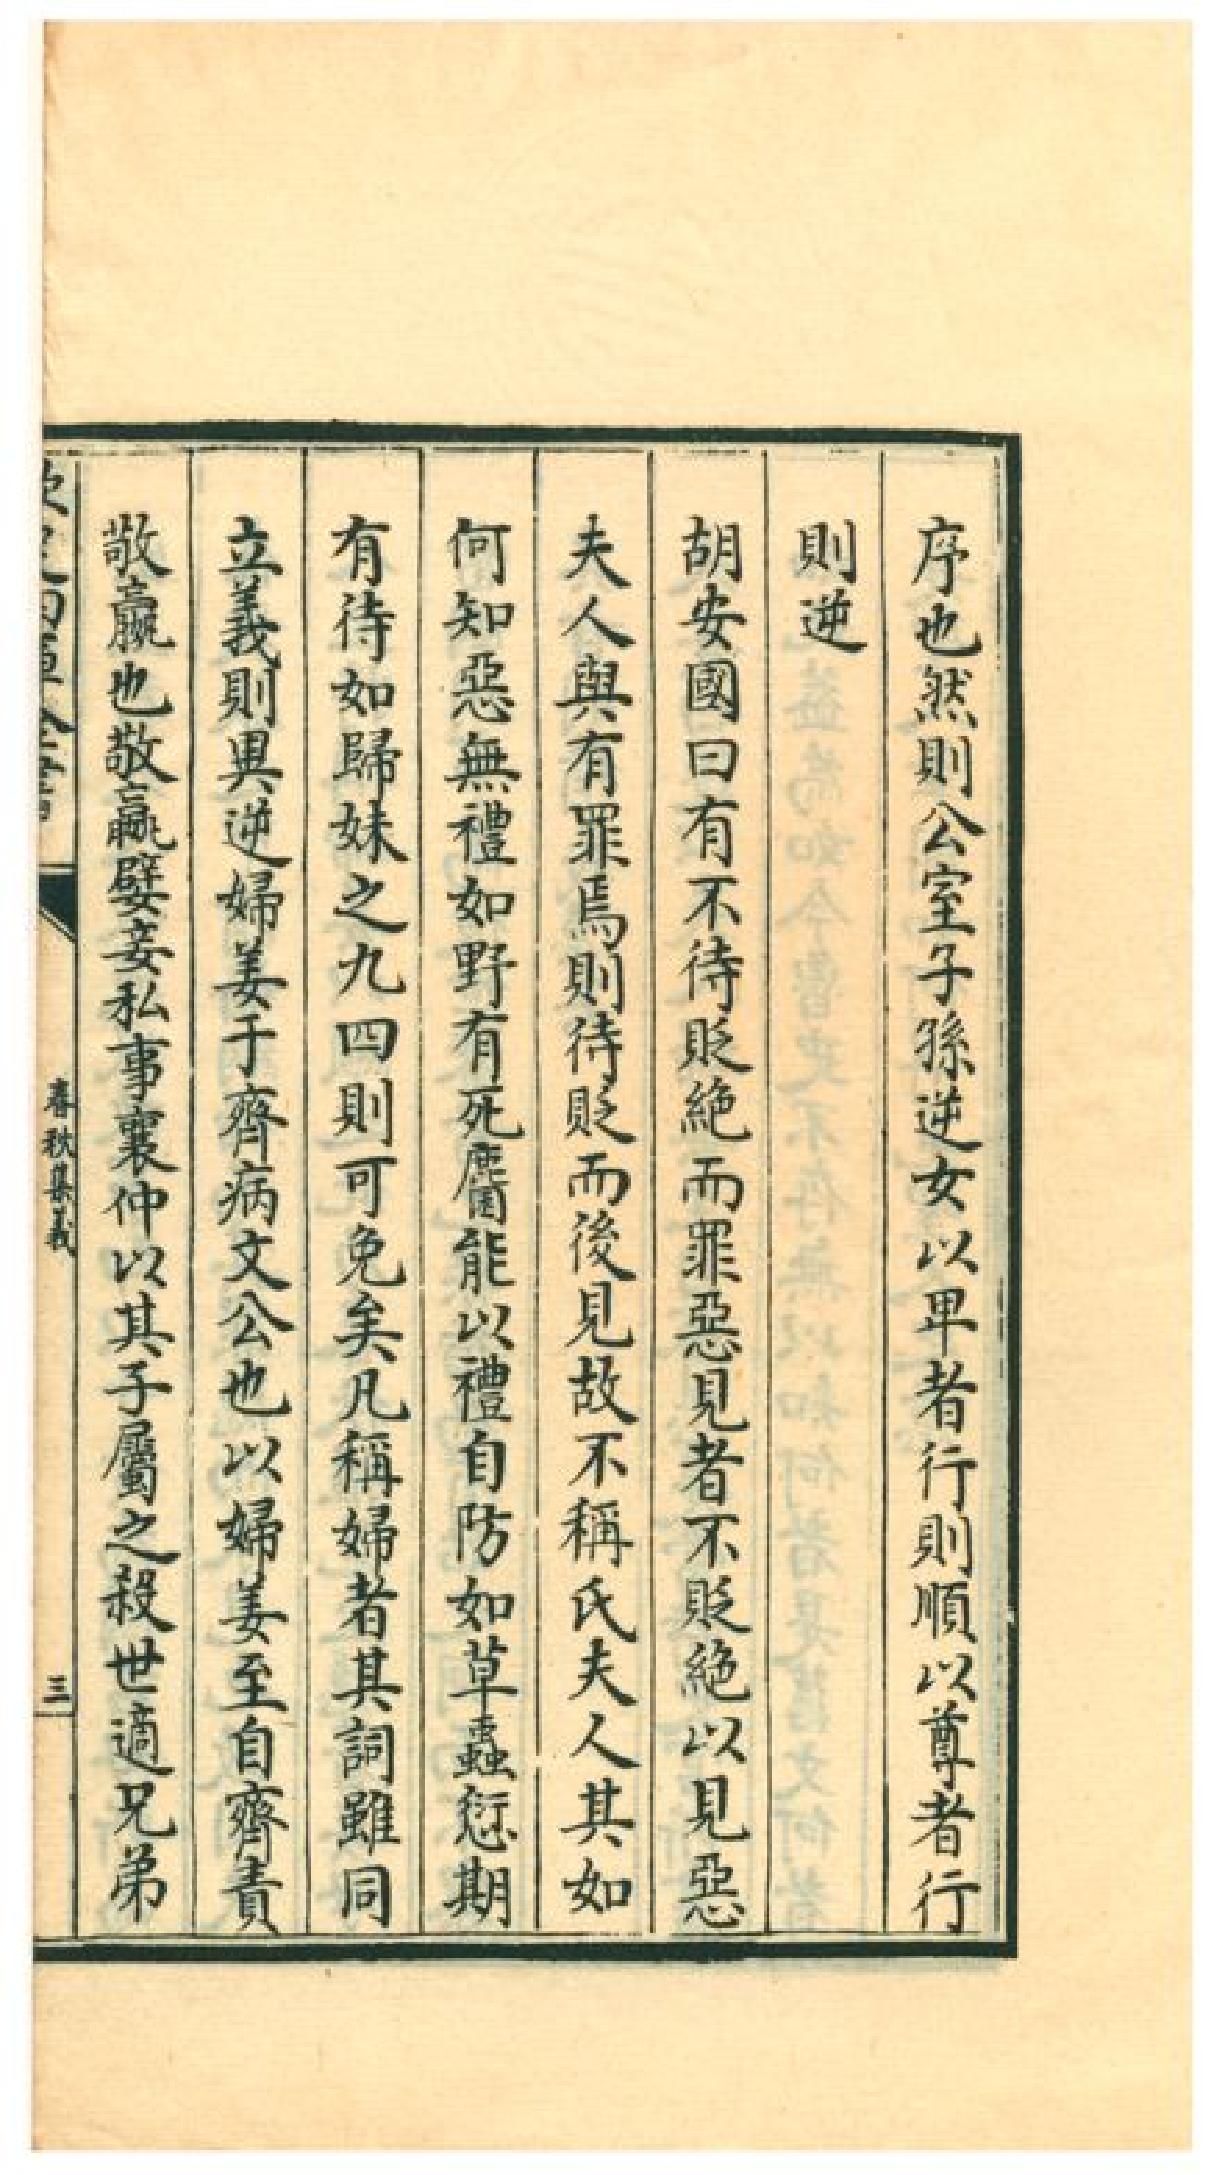 序也然則公室子孫逆女以卑者行則順以尊者行
則逆
胡安國曰有不待貶絶而罪惡見者不貶絶以見惡
夫人與有罪焉則待貶而後見故不稱氏夫人其如
何知惡無禮如野有死麕能以禮自防如草蟲愆期
有待如歸妹之九四則可免矣凡稱婦者其詞雖同
立義則異逆婦姜于齊病文公也以婦姜至自齊責
敬嬴也敬嬴嬖妾私事襄仲以其子屬之殺世適兄弟
春秋集義
三